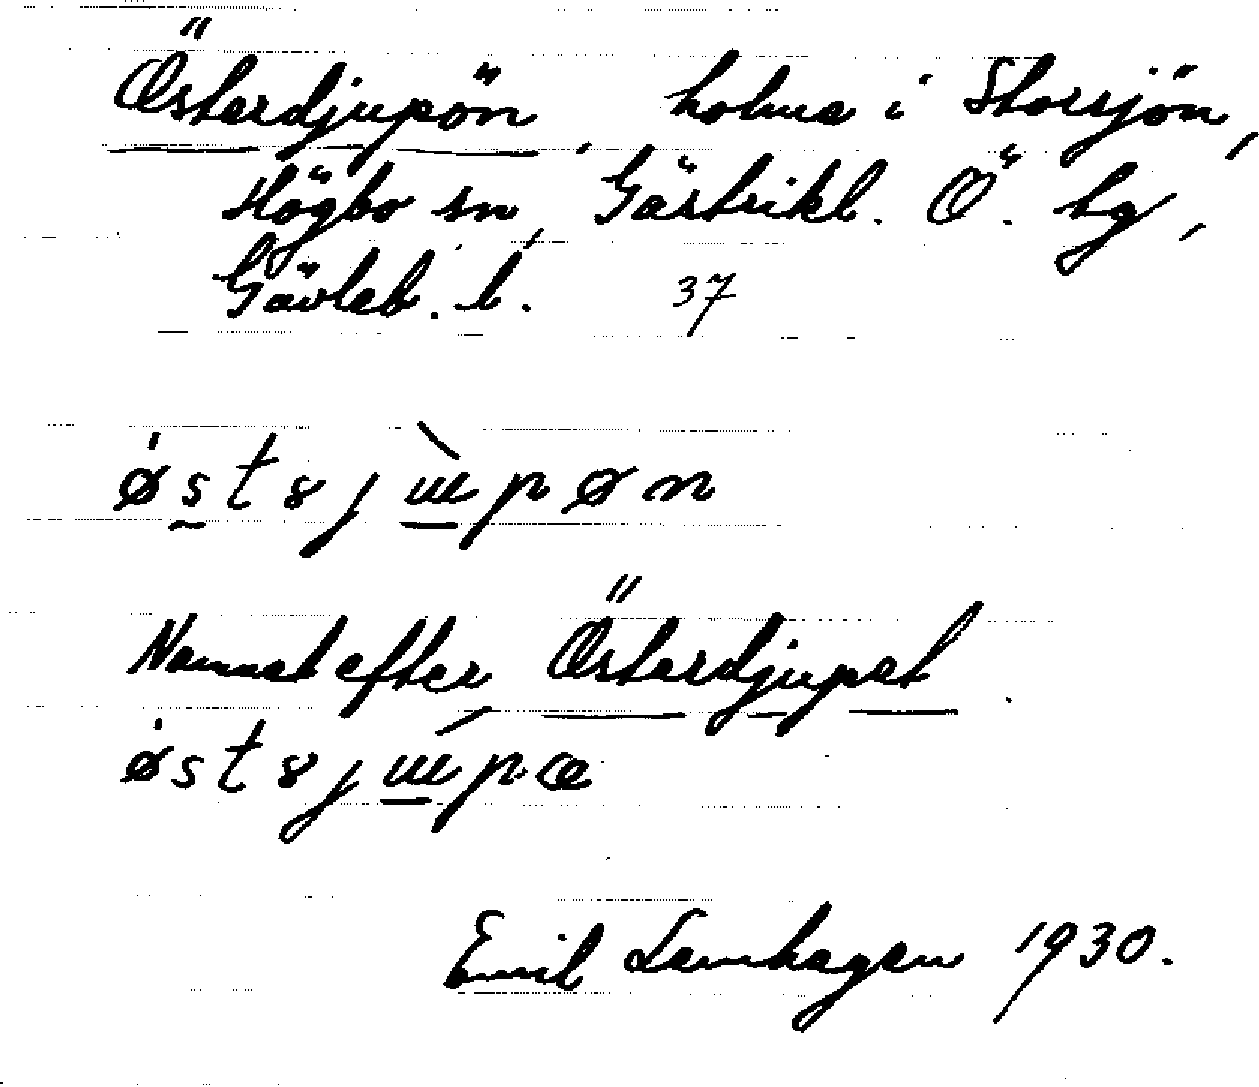 Österdjupön, holme i Storsjön,
Högbo sn, Gästrikl. Ö. tg,
Gävleb. l. 37
østəjɯpøn
Namnet efter Österdjupet.
østəjɯpæ
Emil Lennhagen 1930.